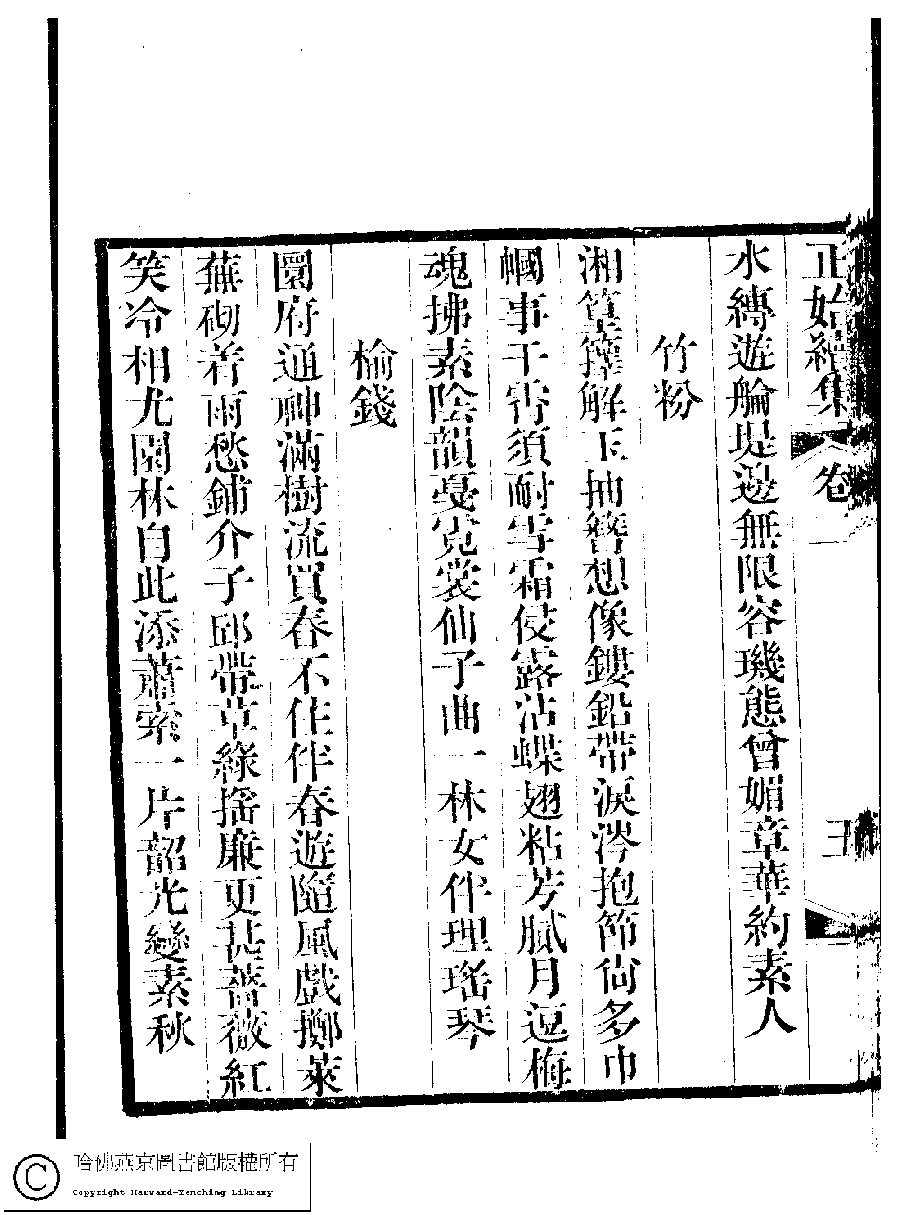 正始續集 卷一 三
水縳遊艙堤邊無限容璣態曾媚章華約素人
竹粉
湘篁籜解玉抽簪想像鏤鉛帶淚涔抱節尙多巾
幗事干霄須耐雪霜侵露沾蝶翅粘芳膩月逗梅
魂拂素陰韻戞霓裳仙子曲一林女伴理瑤琴
榆錢
圜府通神滿樹流買春不住伴春遊隨風戲擲萊
蕪砌着雨愁鋪介子邱帶草綠搖廉更甚薔薇紅
笑冷相尤園林自此添蕭索一片韶光變素秋
哈佛燕京圖書館版權所有
Copyright Harvard-Yenching Library